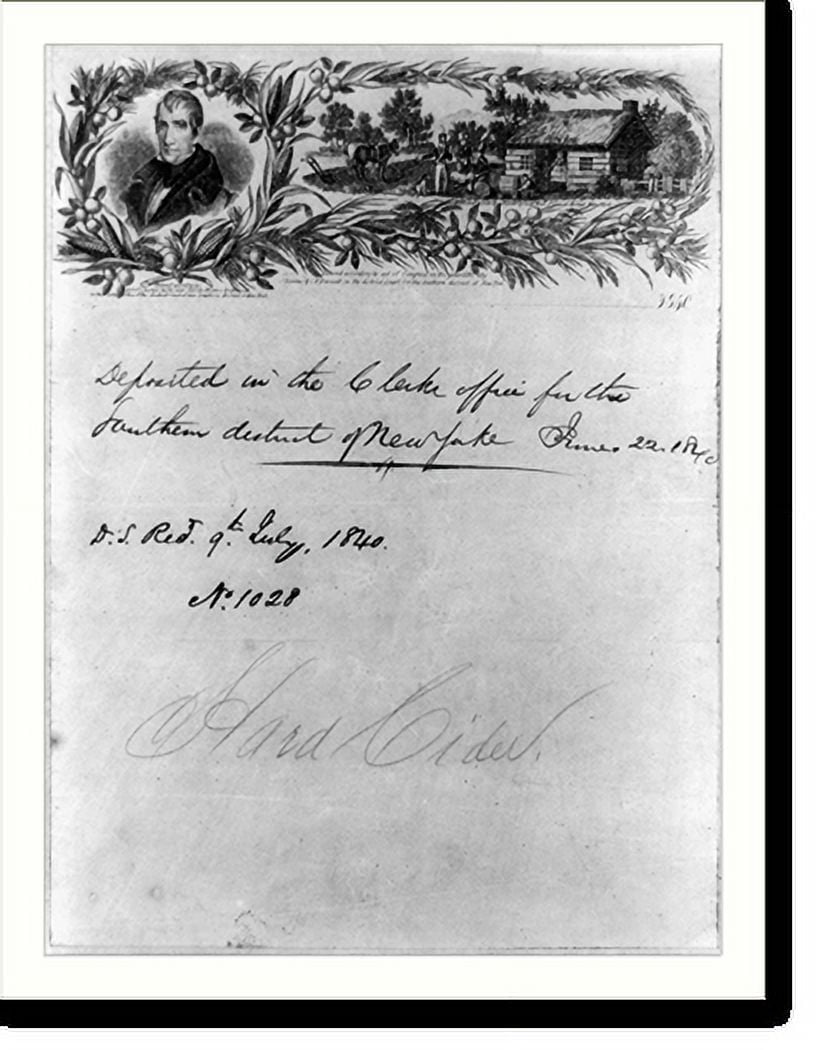 according to act of Congress in the
in the district court for the southern district of New York
Deposited in the Clerks office for the
Southern district of New York June 22. 1840
D.S. Recd. 9th. July, 1840.
No. 1028
Hard Cider.